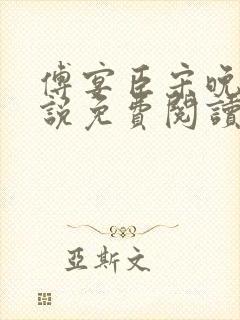 傅宴臣宋晚
說免費閱讀
亞斯文